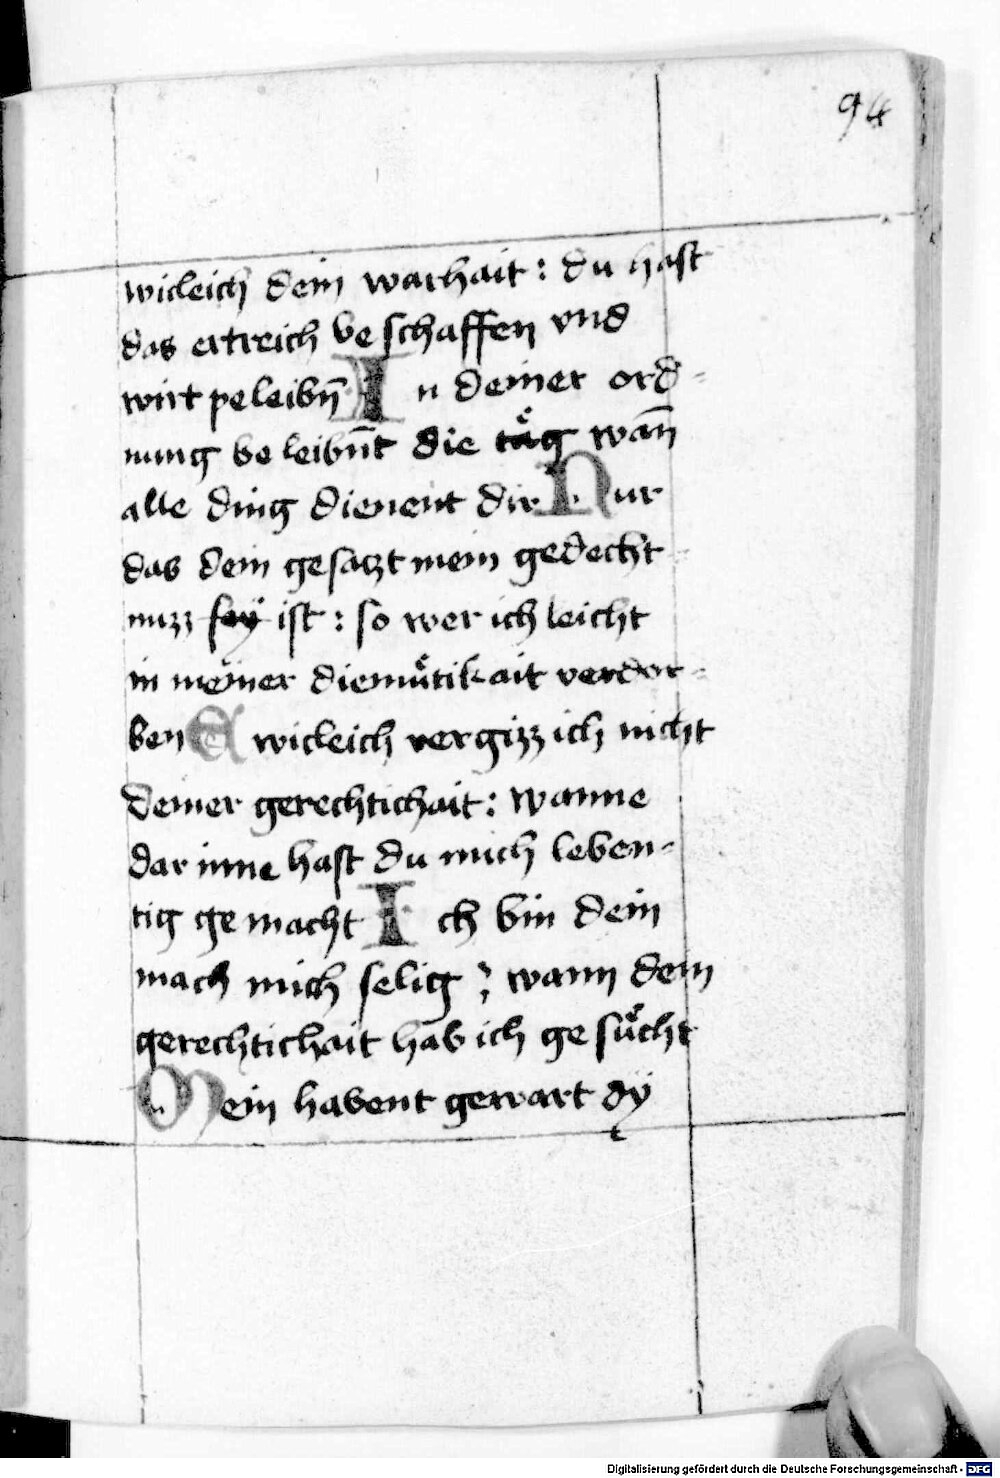 94
wicleich dein warhait : du hast
das ertreich be schaffen vnd
wirt peleibn̄ In deiner ord-
nung be leibn̄t die tåg wan̄
alle ding dienent dir Nur
das dein gesatzt mein gedecht-
nuzz sey ist : so wer ich leicht
in meiner diemůtikait verdor-
ben Ewicleich vergizz ich nicht
deiner gerechtichait : wanne
dar inne hast du mich leben-
tig ge macht Ich bin dein
mach mich selig ; wann dein
gerechtichait hab ich ge sůcht
Mein habent gewart dÿ
Digitalisierung gefördert durch die Deutsche Forschungsgemeinschaft - DFG